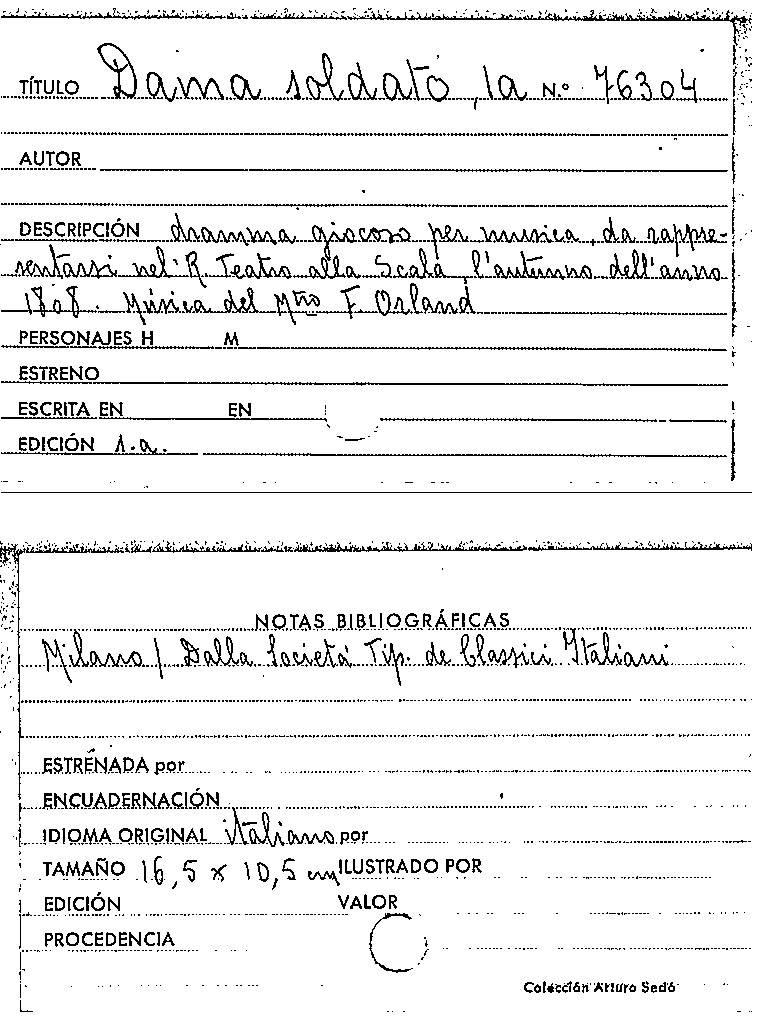 TÍTULO Dama soldato, la N.º 76304
AUTOR
DESCRIPCIÓN dramma giocoso per musica, da rappre-
sentarsi nel' R. Teatro alla Scala l'autunno dell'anno
1808. Música del Mtro F. Orland
PERSONAJES H M
ESTRENO
ESCRITA EN EN
EDICIÓN s.a.
NOTAS BIBLIOGRÁFICAS
Milano / Dalla Societá Tip. de Classici Italiani
ESTRENADA por
ENCUADERNACIÓN
IDIOMA ORIGINAL italiano por
TAMAÑO 16,5 x 10,5 cm ILUSTRADO POR
EDICIÓN VALOR
PROCEDENCIA
Colección Arturo Sedó